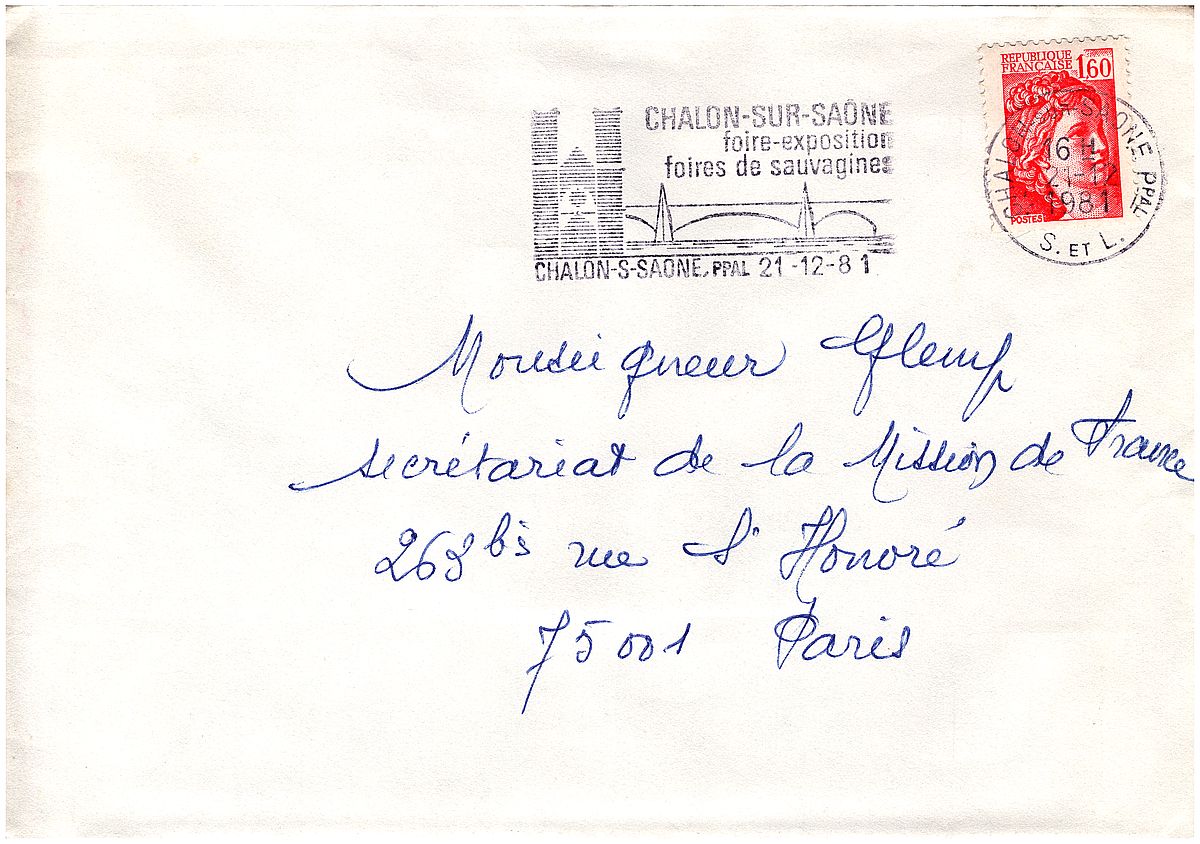 REPUBLIQUE
FRANÇAISE 1,60
POSTES
CHALON-SUR-SAÔNE
foire-exposition
foires de sauvagines
CHALON-S-SAONE, PPAL 21-12-81
SAONE PPAL
16 H
21-12
1981
S. ET L.
Monseigneur Glemp
secrétariat de la Mission de France
263 bis rue St Honoré
75001 Paris